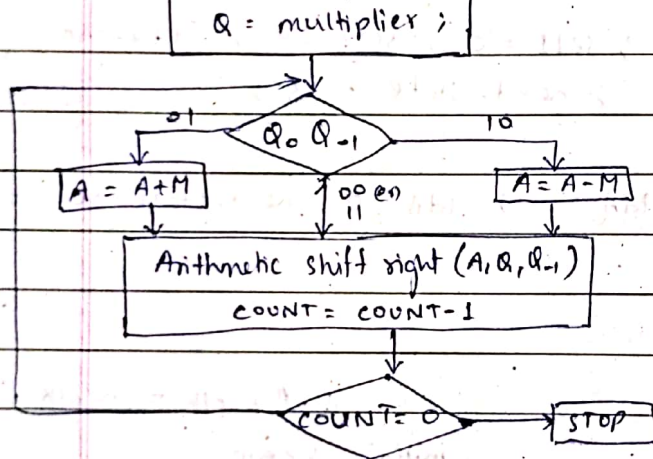 Q = multiplier ;
Q₀ Q₋₁
01
10
A = A+M
00 or
11
A = A-M
Arithmetic shift right (A, Q, Q₋₁)
COUNT = COUNT-1
COUNT = 0
STOP